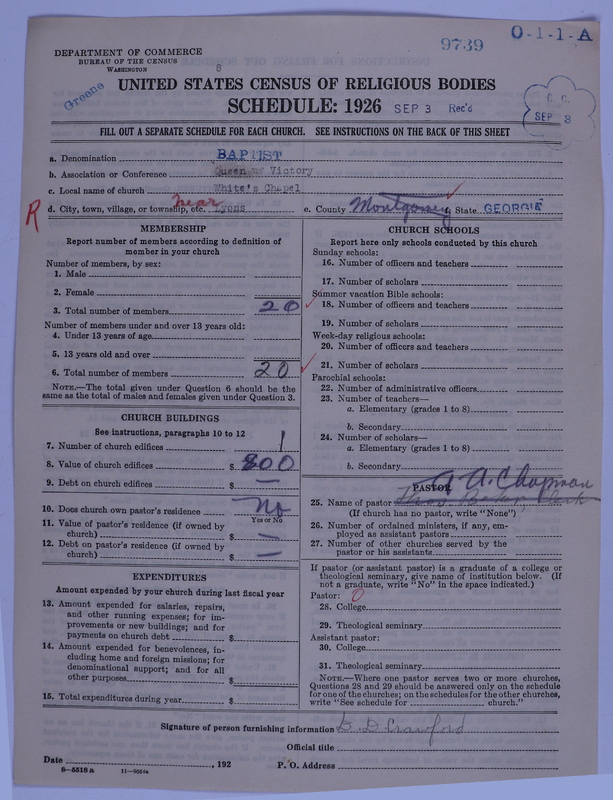 9739
O-1-1-A
DEPARTMENT OF COMMERCE
BUREAU OF THE CENSUS
WASHINGTON
8
Greene
UNITED STATES CENSUS OF RELIGIOUS BODIES
SCHEDULE: 1926 SEP 3 Rec'd
C. C.
SEP 3
FILL OUT A SEPARATE SCHEDULE FOR EACH CHURCH. SEE INSTRUCTIONS ON THE BACK OF THIS SHEET
a. Denomination BAPTIST
b. Association or Conference Queen of Victory
c. Local name of church White's Chapel
R
d. City, town, village, or township, etc. near Lyons e. County Montgomery State GEORGIA
MEMBERSHIP
Report number of members according to definition of
member in your church
Number of members, by sex:
1. Male
2. Female
3. Total number of members 20
Number of members under and over 13 years old:
4. Under 13 years of age
5. 13 years old and over
6. Total number of members 20
NOTE.—The total given under Question 6 should be the
same as the total of males and females given under Question 3.
CHURCH BUILDINGS
See instructions, paragraphs 10 to 12
7. Number of church edifices 1
8. Value of church edifices $ 800
9. Debt on church edifices $ —
10. Does church own pastor's residence No
Yes or No
11. Value of pastor's residence (if owned by
church) $ —
12. Debt on pastor's residence (if owned by
church) $ —
EXPENDITURES
Amount expended by your church during last fiscal year
13. Amount expended for salaries, repairs,
and other running expenses; for im-
provements or new buildings; and for
payments on church debt $
14. Amount expended for benevolences, in-
cluding home and foreign missions; for
denominational support; and for all
other purposes $
15. Total expenditures during year $
CHURCH SCHOOLS
Report here only schools conducted by this church
Sunday schools:
16. Number of officers and teachers
17. Number of scholars
Summer vacation Bible schools:
18. Number of officers and teachers
19. Number of scholars
Week-day religious schools:
20. Number of officers and teachers
21. Number of scholars
Parochial schools:
22. Number of administrative officers
23. Number of teachers—
a. Elementary (grades 1 to 8)
b. Secondary
24. Number of scholars—
a. Elementary (grades 1 to 8)
b. Secondary
PASTOR
A. Chapman
25. Name of pastor Baker, Clerk
(If church has no pastor, write "None")
26. Number of ordained ministers, if any, em-
ployed as assistant pastors
27. Number of other churches served by the
pastor or his assistants
If pastor (or assistant pastor) is a graduate of a college or
theological seminary, give name of institution below. (If
not a graduate, write "No" in the space indicated.)
Pastor: 0
28. College
29. Theological seminary
Assistant pastor:
30. College
31. Theological seminary
NOTE.—Where one pastor serves two or more churches,
Questions 28 and 29 should be answered only on the schedule
for one of the churches; on the schedules for the other churches,
write "See schedule for church."
Signature of person furnishing information D. D. Crawford
Official title
Date , 192 P. O. Address
8—5518 a 11—9054a